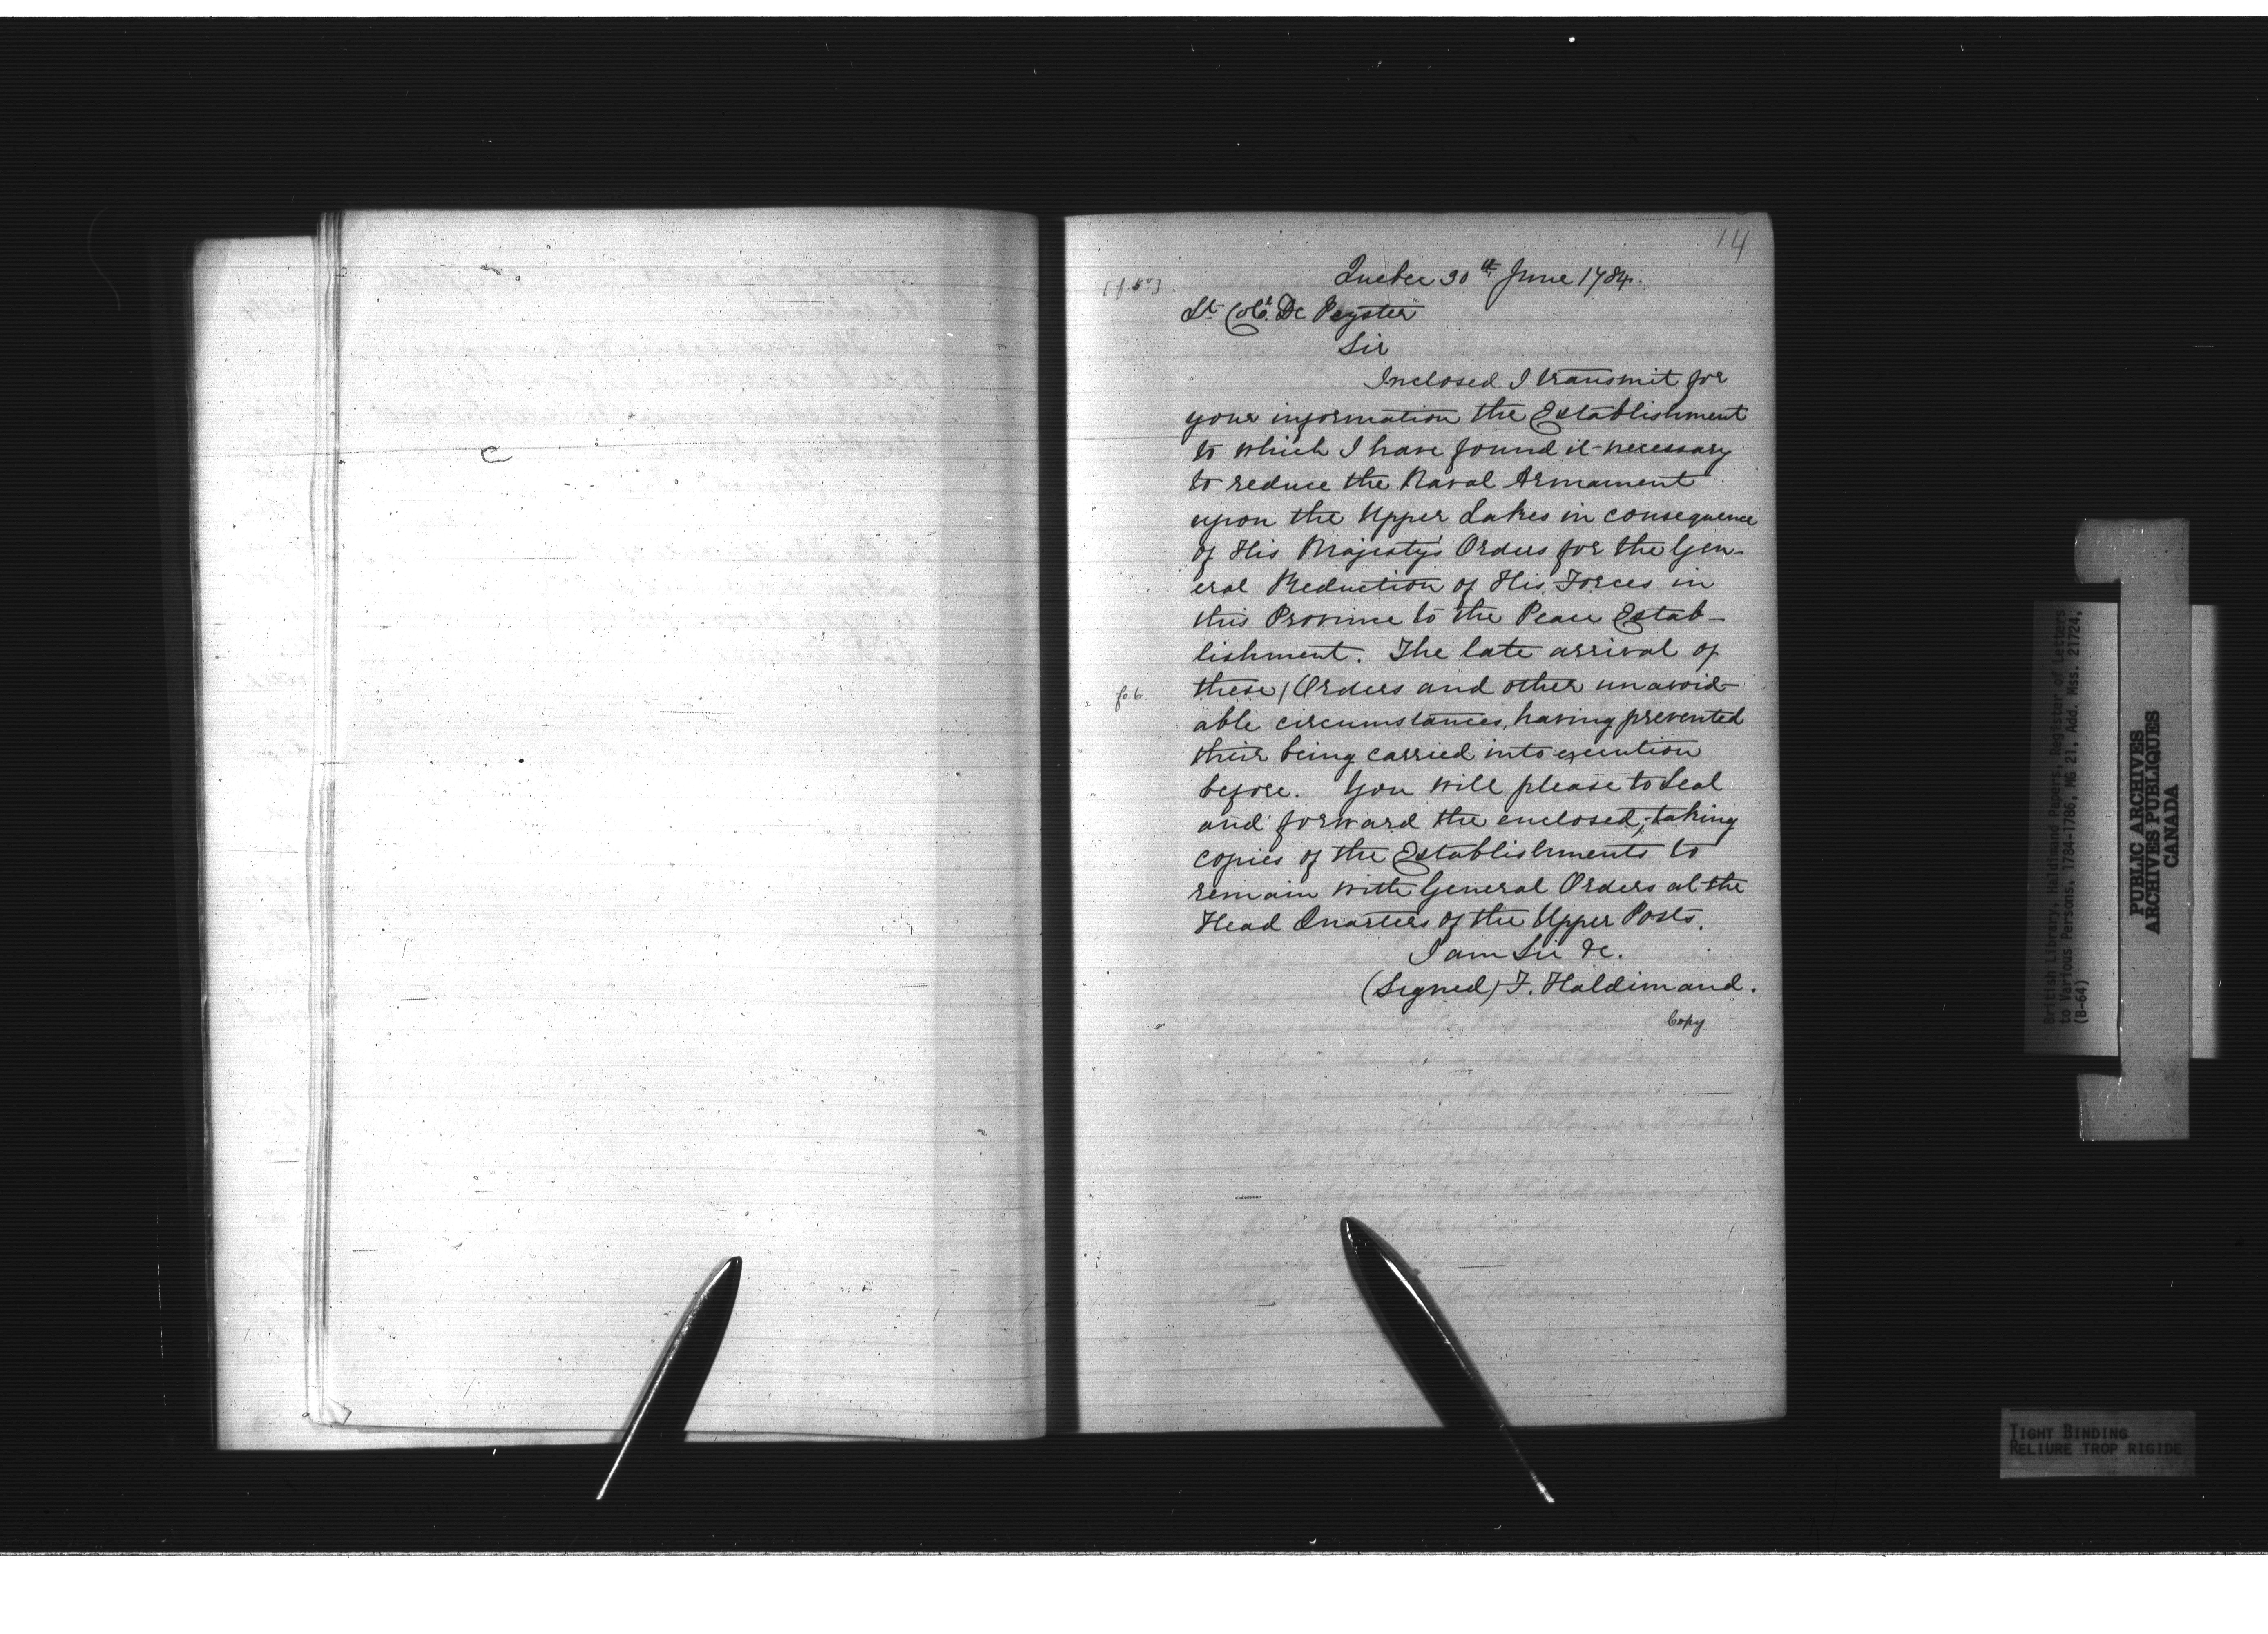 14
[f. 5v]
Quebec 30th June 1784.
Lt Colo. De Peyster
Sir
Inclosed I transmit for
your information the Establishment
to which I have found it necessary
to reduce the Naval Armament
upon the Upper Lakes in consequence
of His Majesty's Orders for the Gen-
eral Reduction of His Forces in
this Province to the Peace Estab-
lishment. The late arrival of
fo. 6.
these / Orders and other unavoid-
able circumstances, having prevented
their being carried into execution
before. You will please to Seal
and forward the enclosed, taking
copies of the Establishments to
remain with General Orders at the
Head Quarters of the Upper Posts.
I am Sir &c.
(Signed) F. Haldimand.
Copy
British Library, Haldimand Papers, Register of Letters
to Various Persons, 1784-1786, MG 21, Add. Mss. 21724,
(B-64)
PUBLIC ARCHIVES
ARCHIVES PUBLIQUES
CANADA
TIGHT BINDING
RELIURE TROP RIGIDE